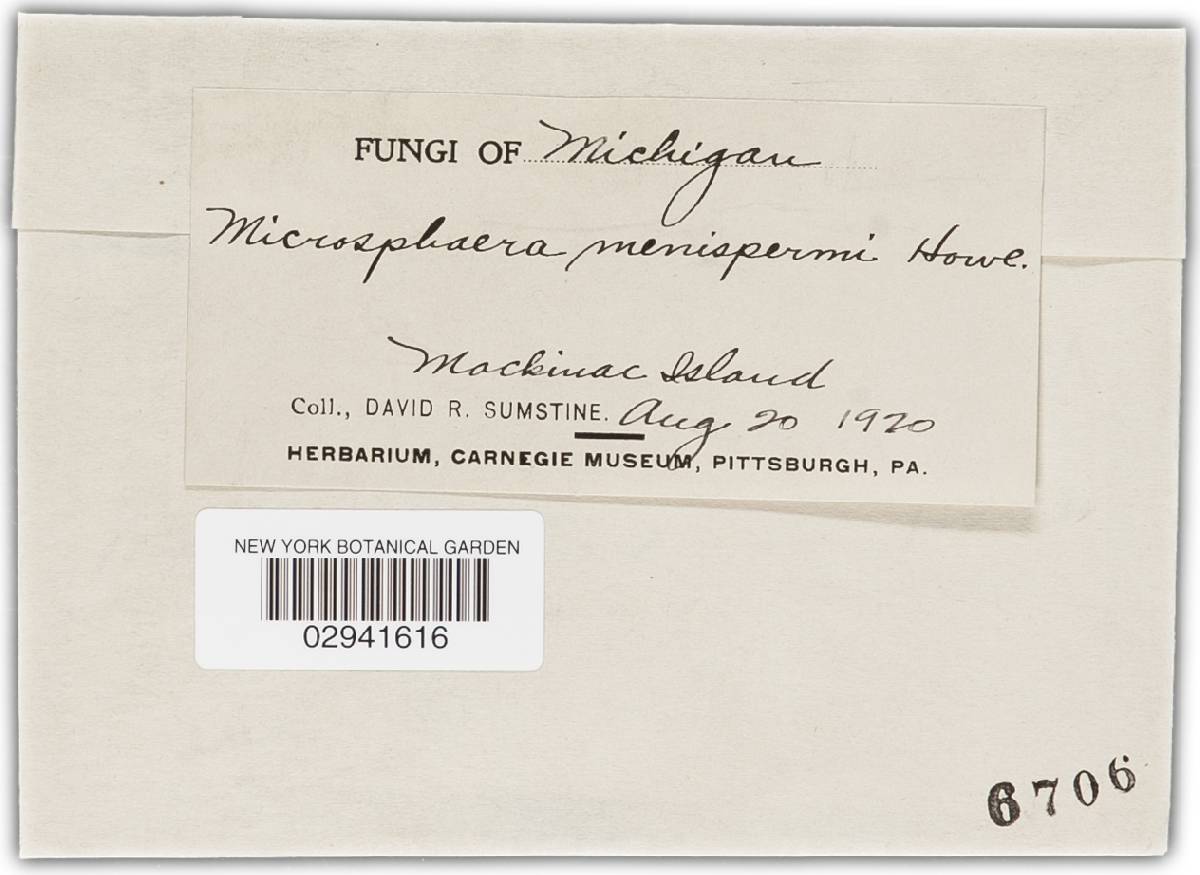 FUNGI OF Michigan
Microsphaera menispermi Howe.
Mackinac Island
Coll., DAVID R. SUMSTINE. Aug 20 1920
HERBARIUM, CARNEGIE MUSEUM, PITTSBURGH, PA.
NEW YORK BOTANICAL GARDEN
02941616
6706